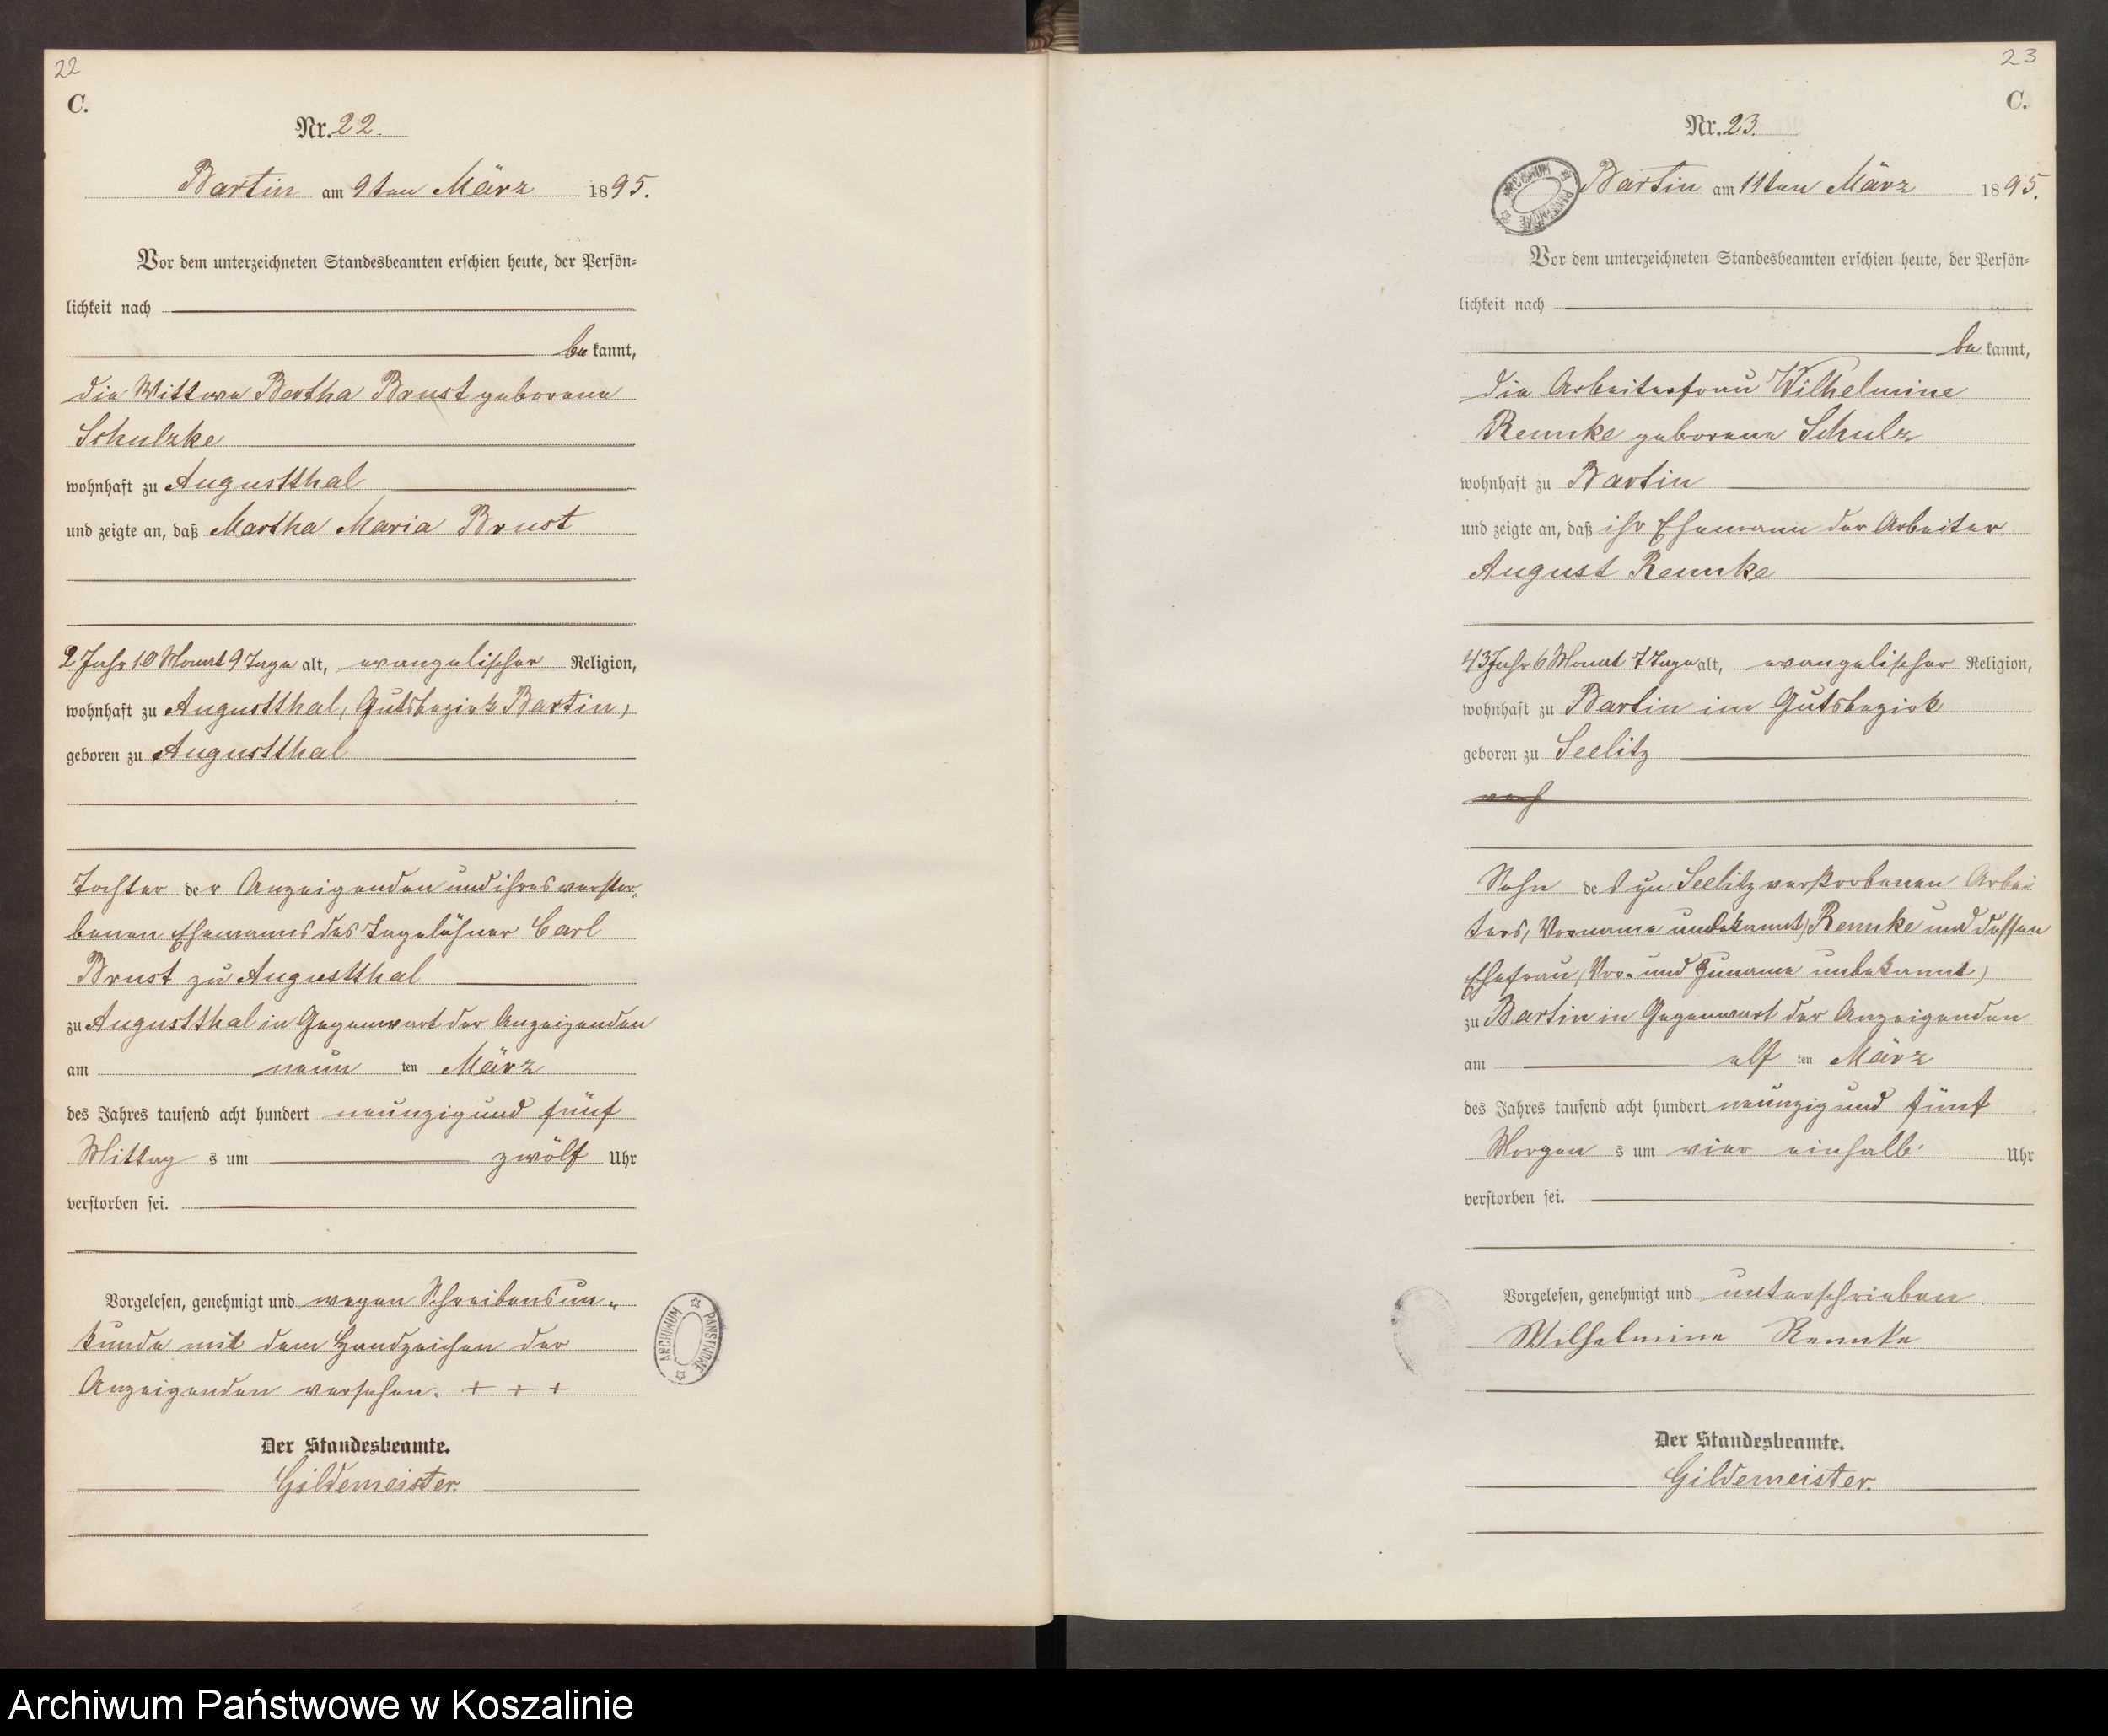 22
C.
Nr. 22.
Bartin am 9ten März 1895.
Vor dem unterzeichneten Standesbeamten erschien heute, der Persön=
lichkeit nach
be kannt,
die Wittwe Bertha Brust geborene
Schulzke
wohnhaft zu Augustthal
und zeigte an, daß Martha Maria Brust
2 Jahr 10 Monat 9 Tage alt, evangelischer Religion,
wohnhaft zu Augustthal, Gutsbezirk Bartin,
geboren zu Augustthal
Tochter der Anzeigenden und ihres verstor=
benen Ehemanns des Tagelöhner Carl
Brust zu Augustthal
zu Augustthal in Gegenwart der Anzeigenden
am neun ten März
des Jahres tausend acht hundert neunzig und fünf
Mittag s um zwölf Uhr
verstorben sei.
Vorgelesen, genehmigt und wegen Schreibensun=
kunde mit dem Handzeichen der
Anzeigenden versehen. + + +
Der Standesbeamte.
Gildemeister.
ARCHIWUM PAŃSTWOWE
23
C.
Nr. 23.
ARCHIWUM PAŃSTWOWE
Bartin am 11ten März 1895.
Vor dem unterzeichneten Standesbeamten erschien heute, der Persön=
lichkeit nach
be kannt,
die Arbeiterfrau Wilhelmine
Remnke geborene Schulz
wohnhaft zu Bartin
und zeigte an, daß ihr Ehemann der Arbeiter
August Remnke
43 Jahr 6 Monat 7 Tage alt, evangelischer Religion,
wohnhaft zu Bartin im Gutsbezirk
geboren zu Seelitz
Sohn des zu Seelitz verstorbenen Arbei
ters, (Vorname unbekannt) Remnke und dessen
Ehefrau, (Vor- und Zuname unbekannt)
zu Bartin in Gegenwart der Anzeigenden
am elf ten März
des Jahres tausend acht hundert neunzig und fünf
Morgen s um vier einhalb Uhr
verstorben sei.
Vorgelesen, genehmigt und unterschrieben
Wilhelmine Remnke
Der Standesbeamte.
Gildemeister.
Archiwum Państwowe w Koszalinie